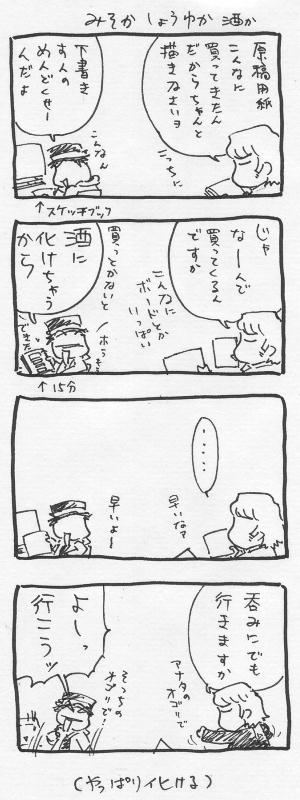 みそか しょうゆか 酒か
原稿用紙
こんなに
買ってきたん
だからちゃんと
描きなさいョ
こっちに
下書き
すんの
めんどくせー
んだよ
こんなん
↑スケッチブック
じゃ
なーんで
買ってくるん
ですか
こんなに
ボードとか
いっぱい
買っとかないと
酒に
化けちゃう
から
ホラ
できた
↑15分
・・・・・
早いなァ
早いよー
呑みにでも
行きますか
アナタの
オゴリで
よーっ
行こうッ
そっちの
オゴリで!
(やっぱり化ける)